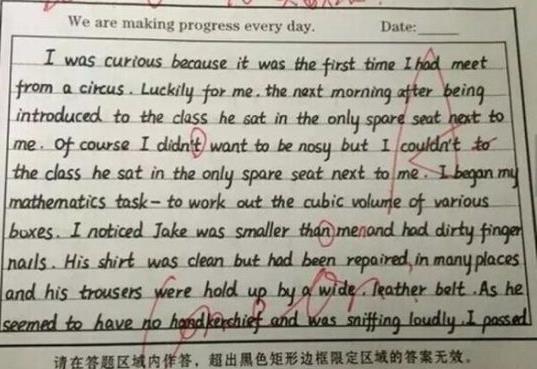 We are making progress every day. Date:
I was curious because it was the first time I had meet
from a circus. Luckily for me. the next morning after being
introduced to the class he sat in the only spare seat next to
me. Of course I didn't want to be nosy but I couldn't to
the class he sat in the only spare seat next to me. I began my
mathematics task- to work out the cubic volume of various
boxes. I noticed Jake was smaller than menand had dirty finger
nails. His shirt was clean but had been repaired in many places
and his trousers were hold up by a wide. leather belt. As he
seemed to have no handkerchief and was sniffing loudly. I passed
请在答题区域内作答，超出黑色矩形边框限定区域的答案无效。